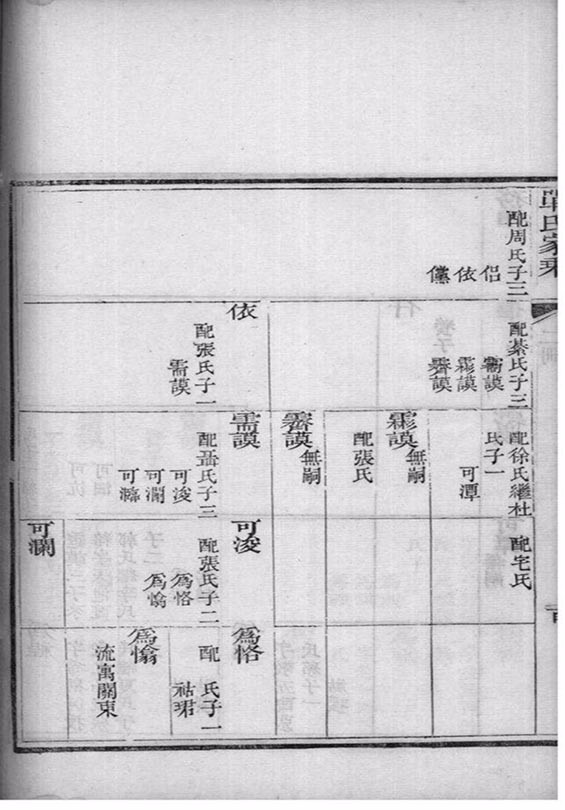 氏家乘
配周氏子三
侣
依
儻
配綦氏子三
霨謨
霦謨
霽謨
依
配張氏子一
需謨
配徐氏繼杜
氏子一
可潭
霦謨
無嗣
配張氏
霽謨
無嗣
需謨
配聶氏子三
可浚
可瀾
可瀛
配宅氏
可浚
配張氏子二
為恪
為愉
可瀾
為恪
配 氏子一
祜珺
為愉
流寓關東